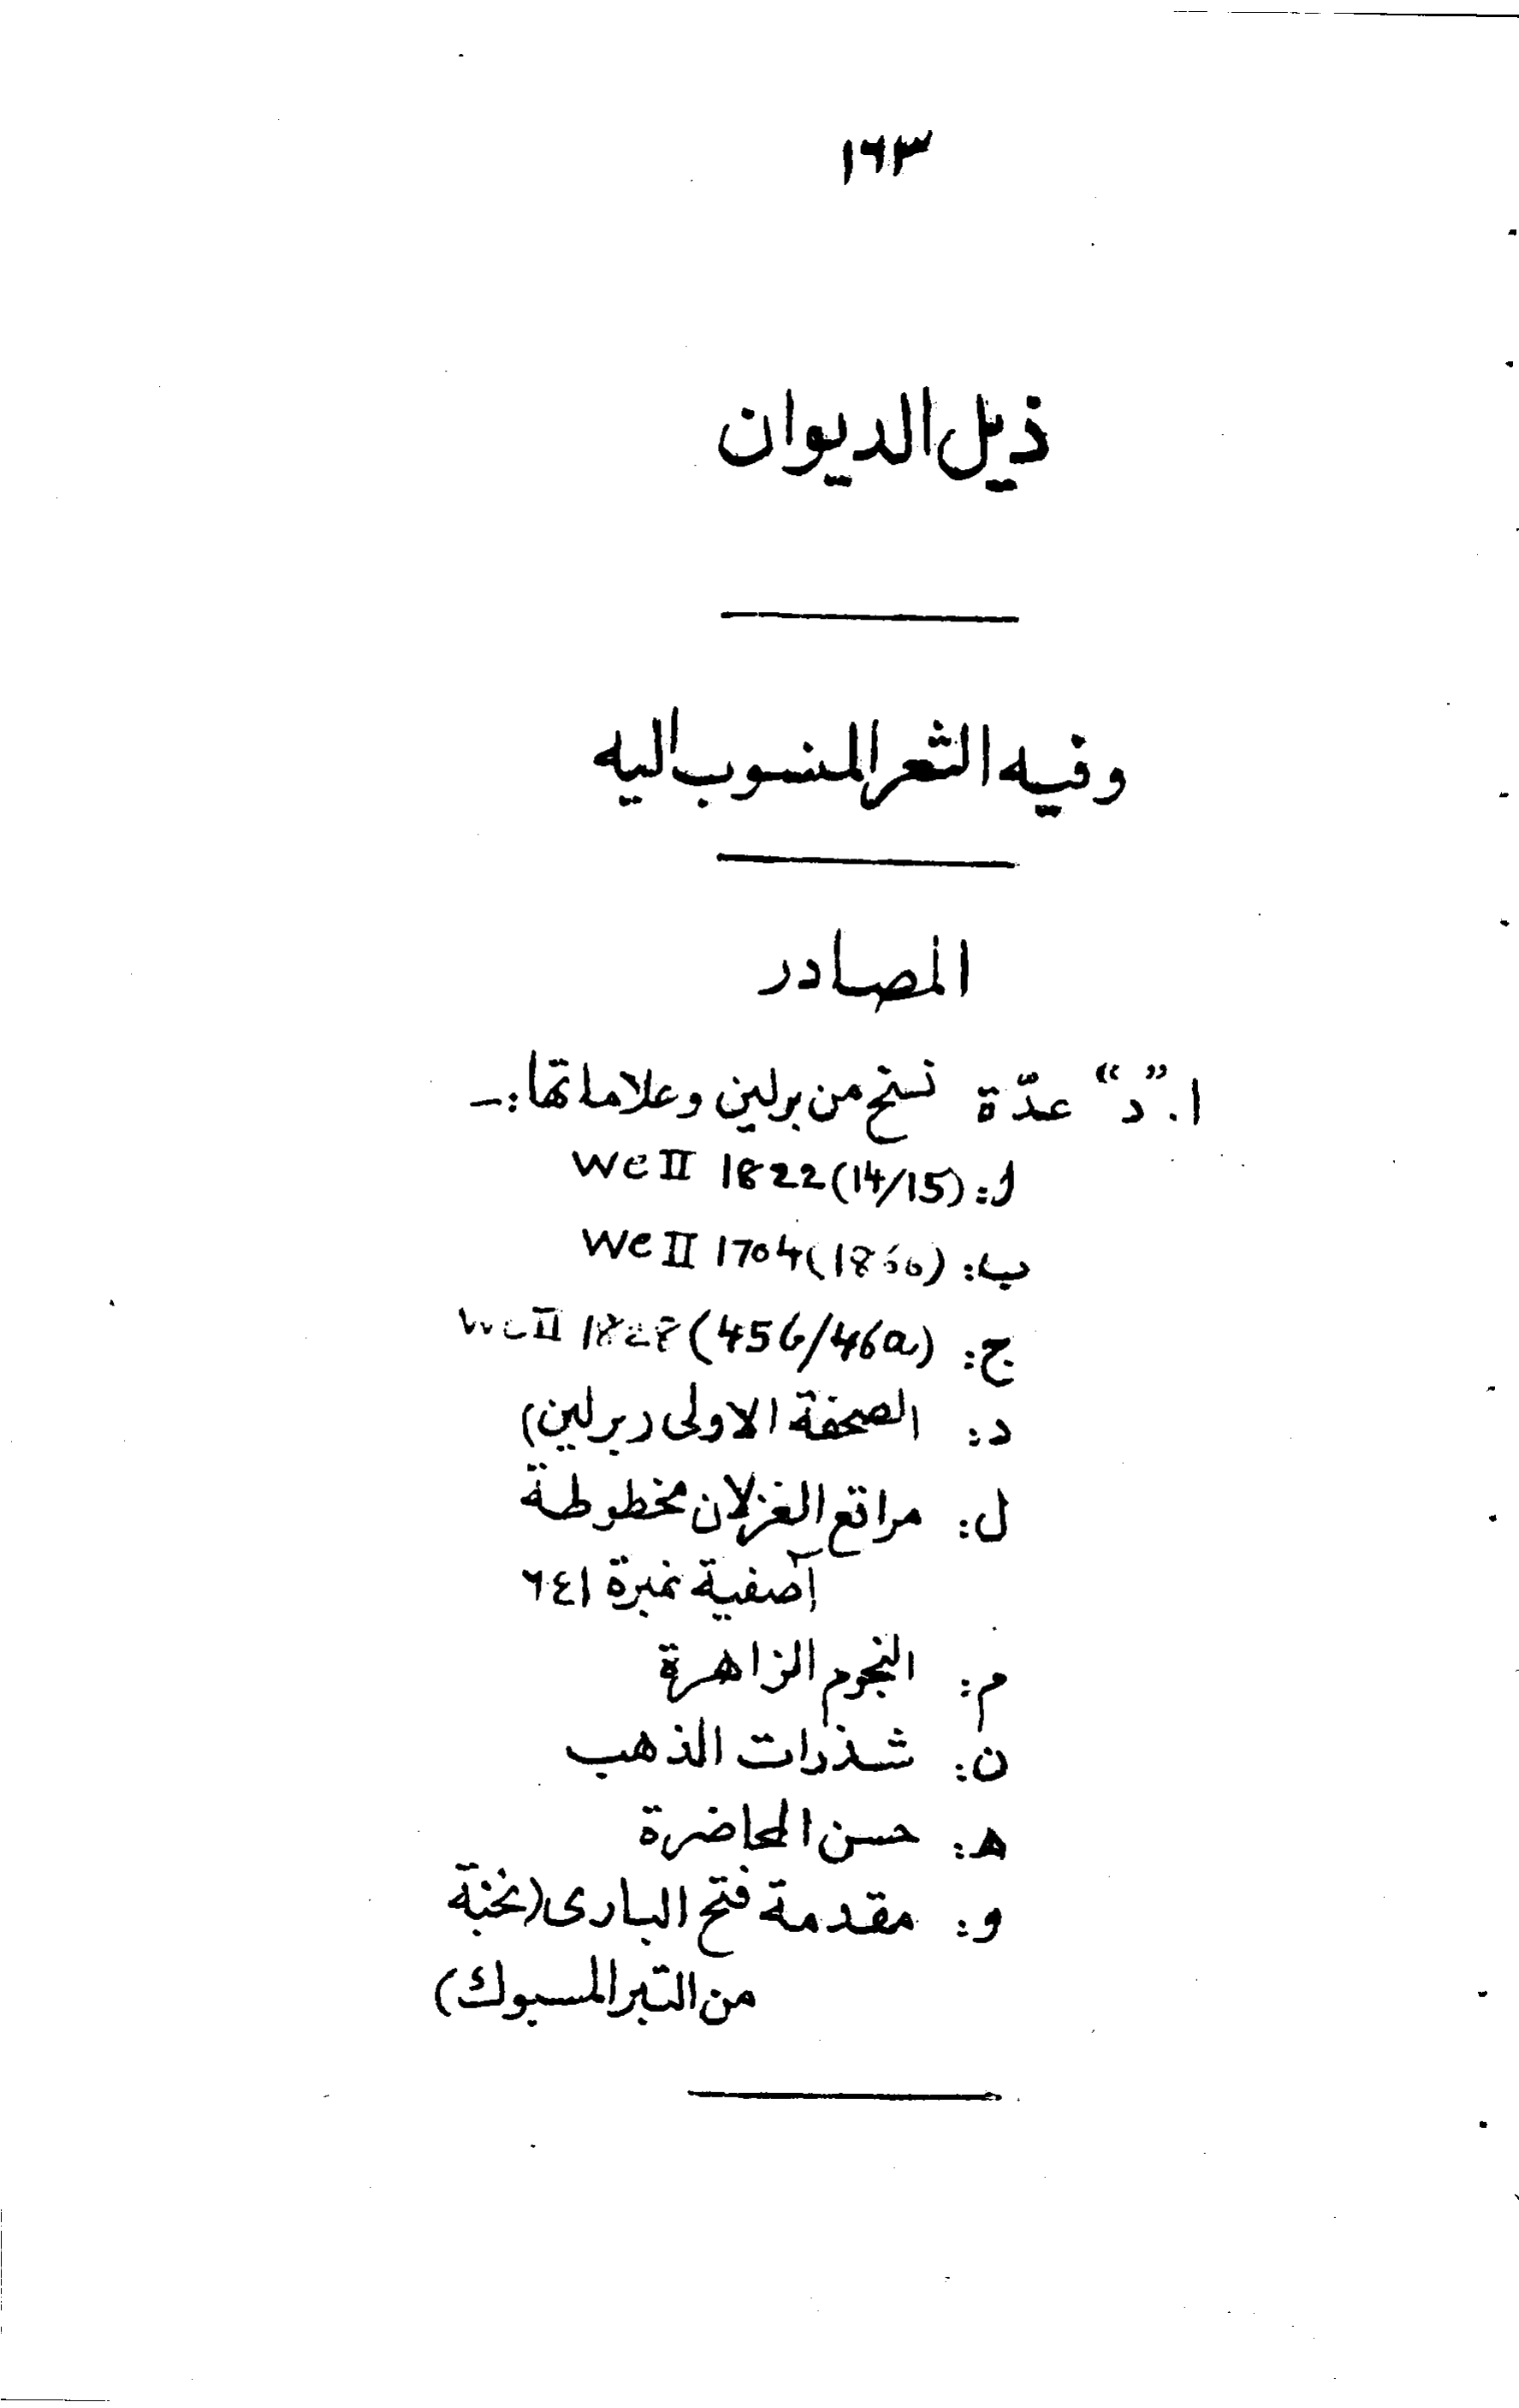 ١٦٣
ذيل الديوان
وفيه الشعر المنسوب اليه
المصادر
١. ”د“ عدّة نسخ من برلين وعلاماتها:ـ
ا: We II 1822 (14/15)
ب: We II 1704 (186b)
ج: We II 1828 (45b/46a)
د: الصحفة الاولى (برلين)
ل: مراتع الغزلان مخطوطة
آصفية نمبرة ٦٤١
م: النجوم الزاهرة
ن: شذرات الذهب
ه: حسن المحاضرة
و: مقدمة فتح البارى (نخبة
من التبر المسبوك)